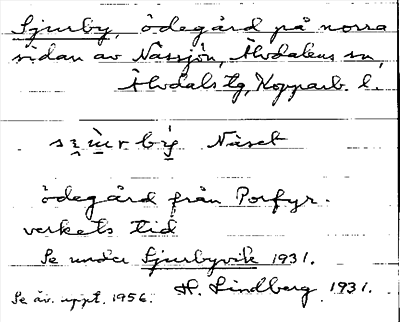 Sjurby, ödegård på norra
sidan av Nässjön, Älvdalens sn,
Älvdals tg, Kopparb. l.
Näset
ödegård från Porfyr-
verkets tid
Se under Sjurbyvik 1931.
Se äv. uppt. 1956. H. Lindberg 1931.